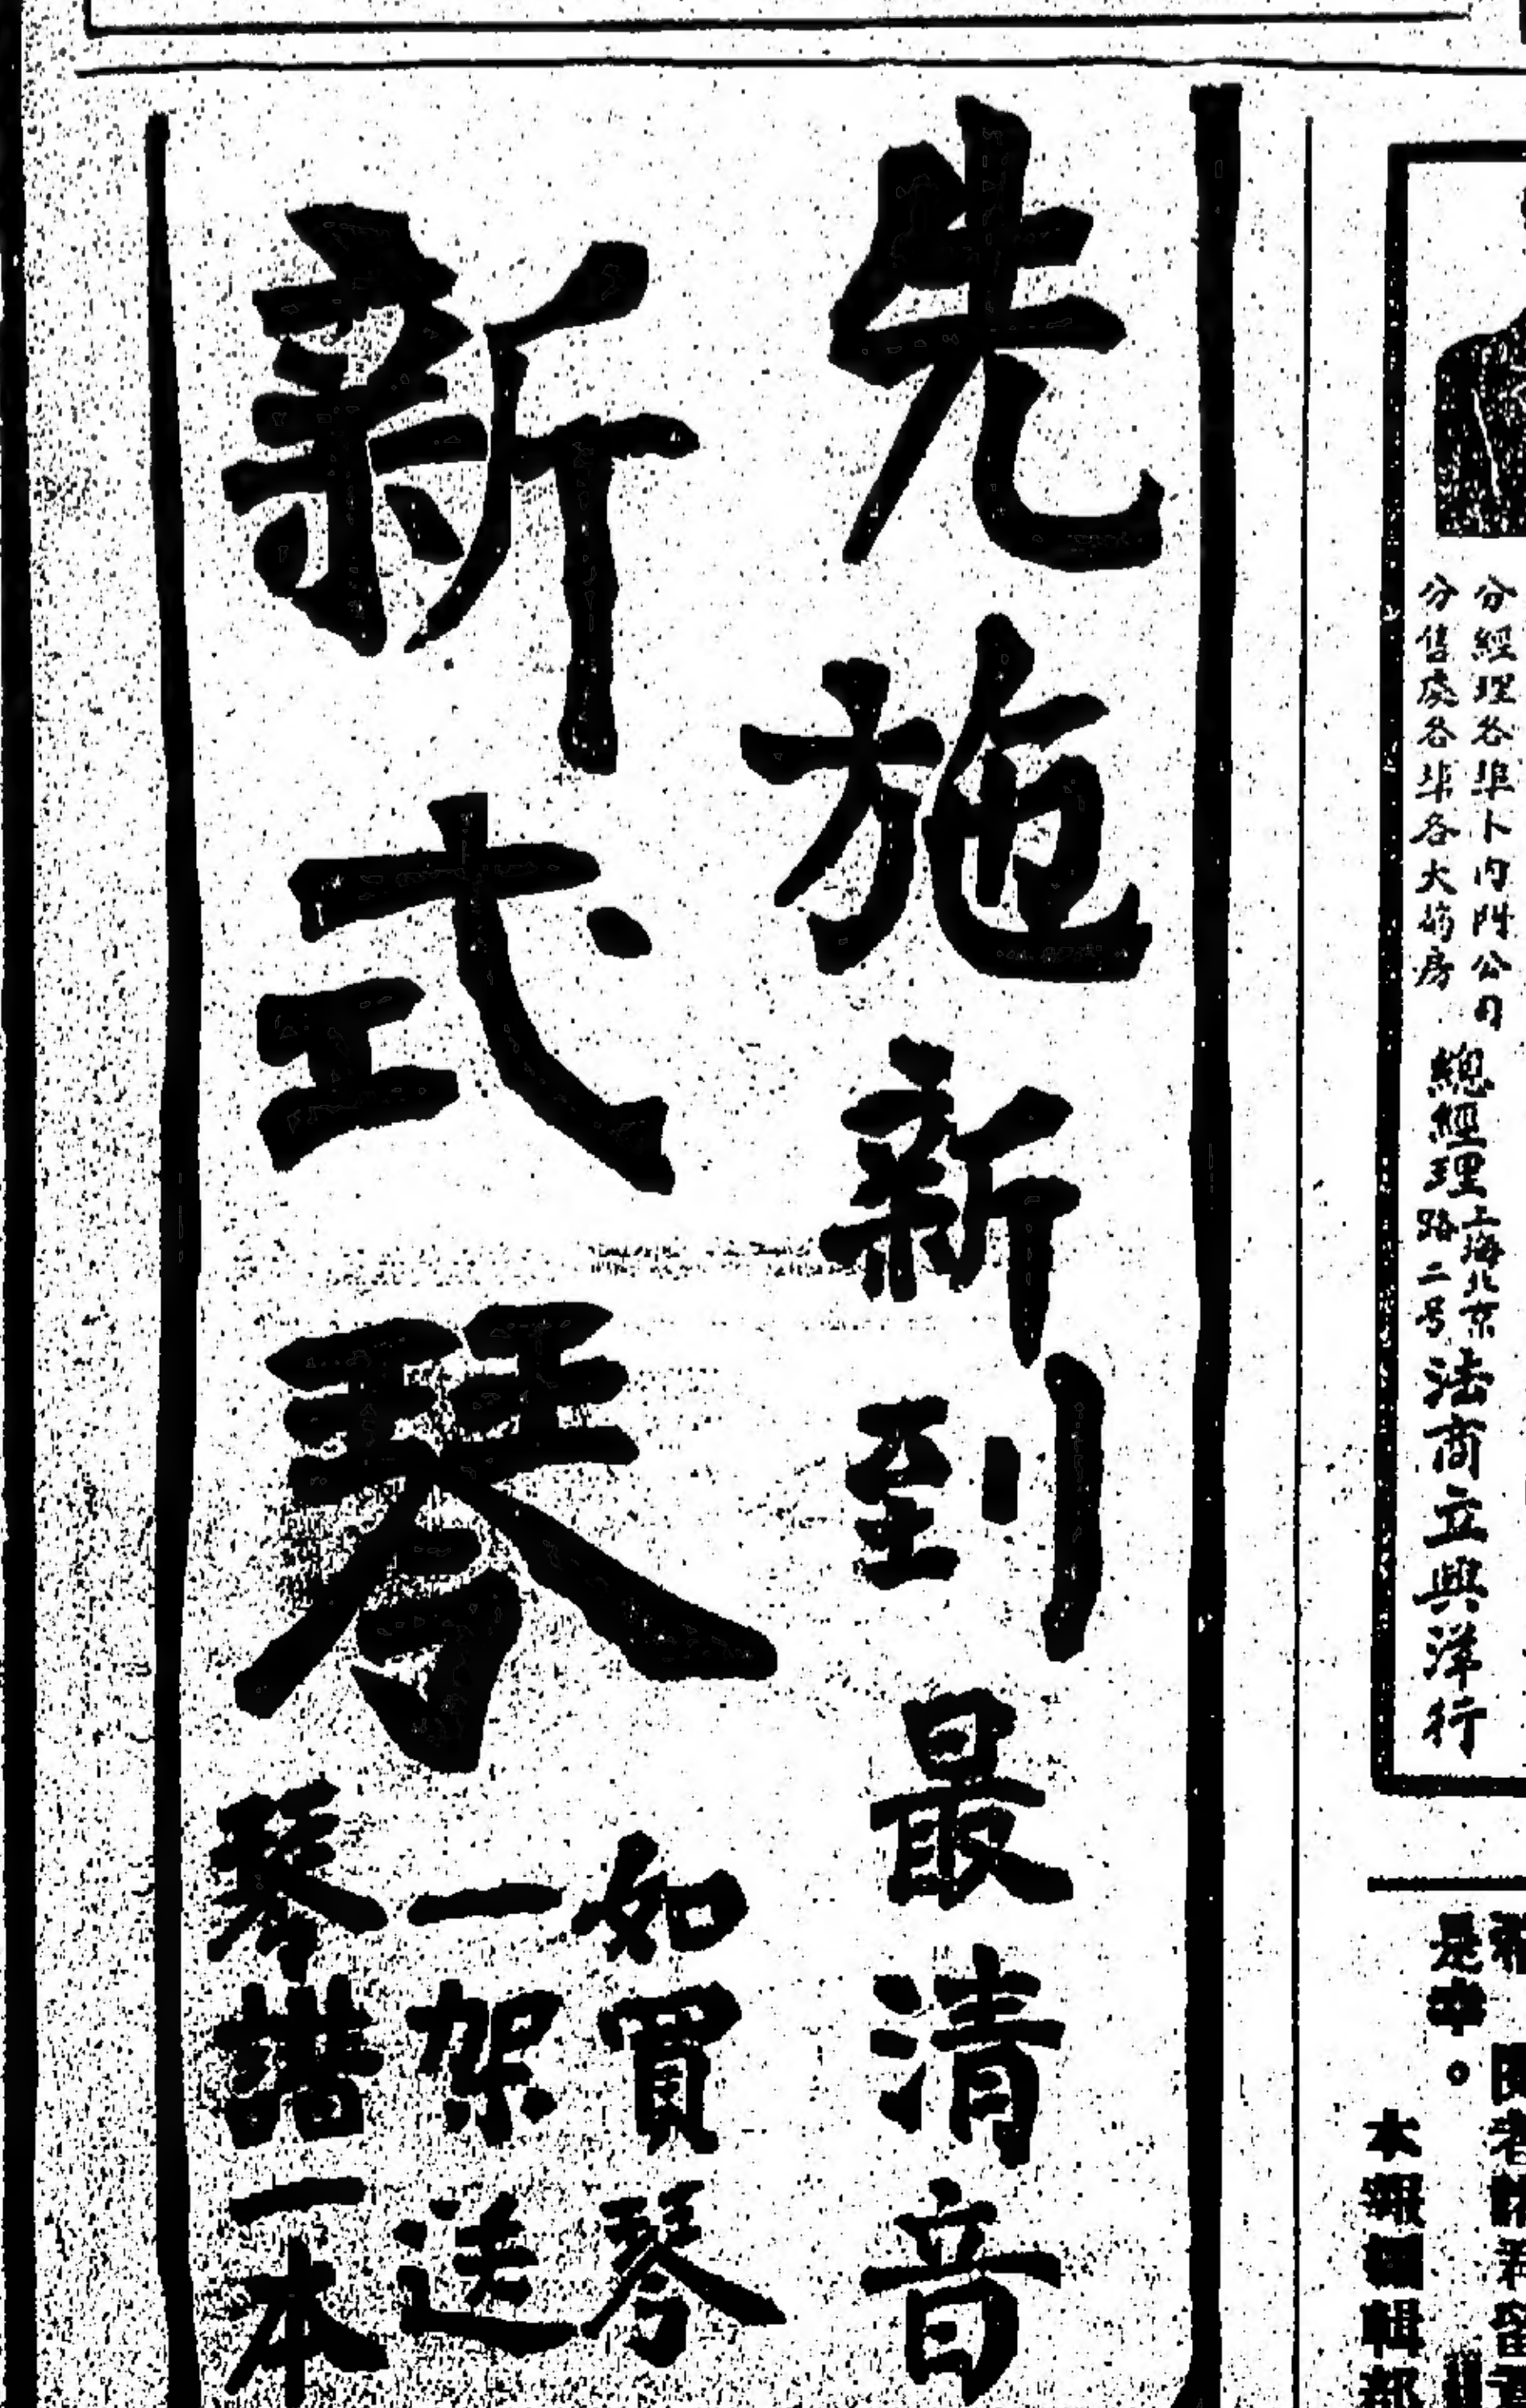 分經理各埠卜内門公司
分售處各埠各大药房
總經理
上海北京
路二号
法商立興洋行
是幸。
本報編輯部
先施新到最清音
新式琴
如買琴
一架送
琴譜一本